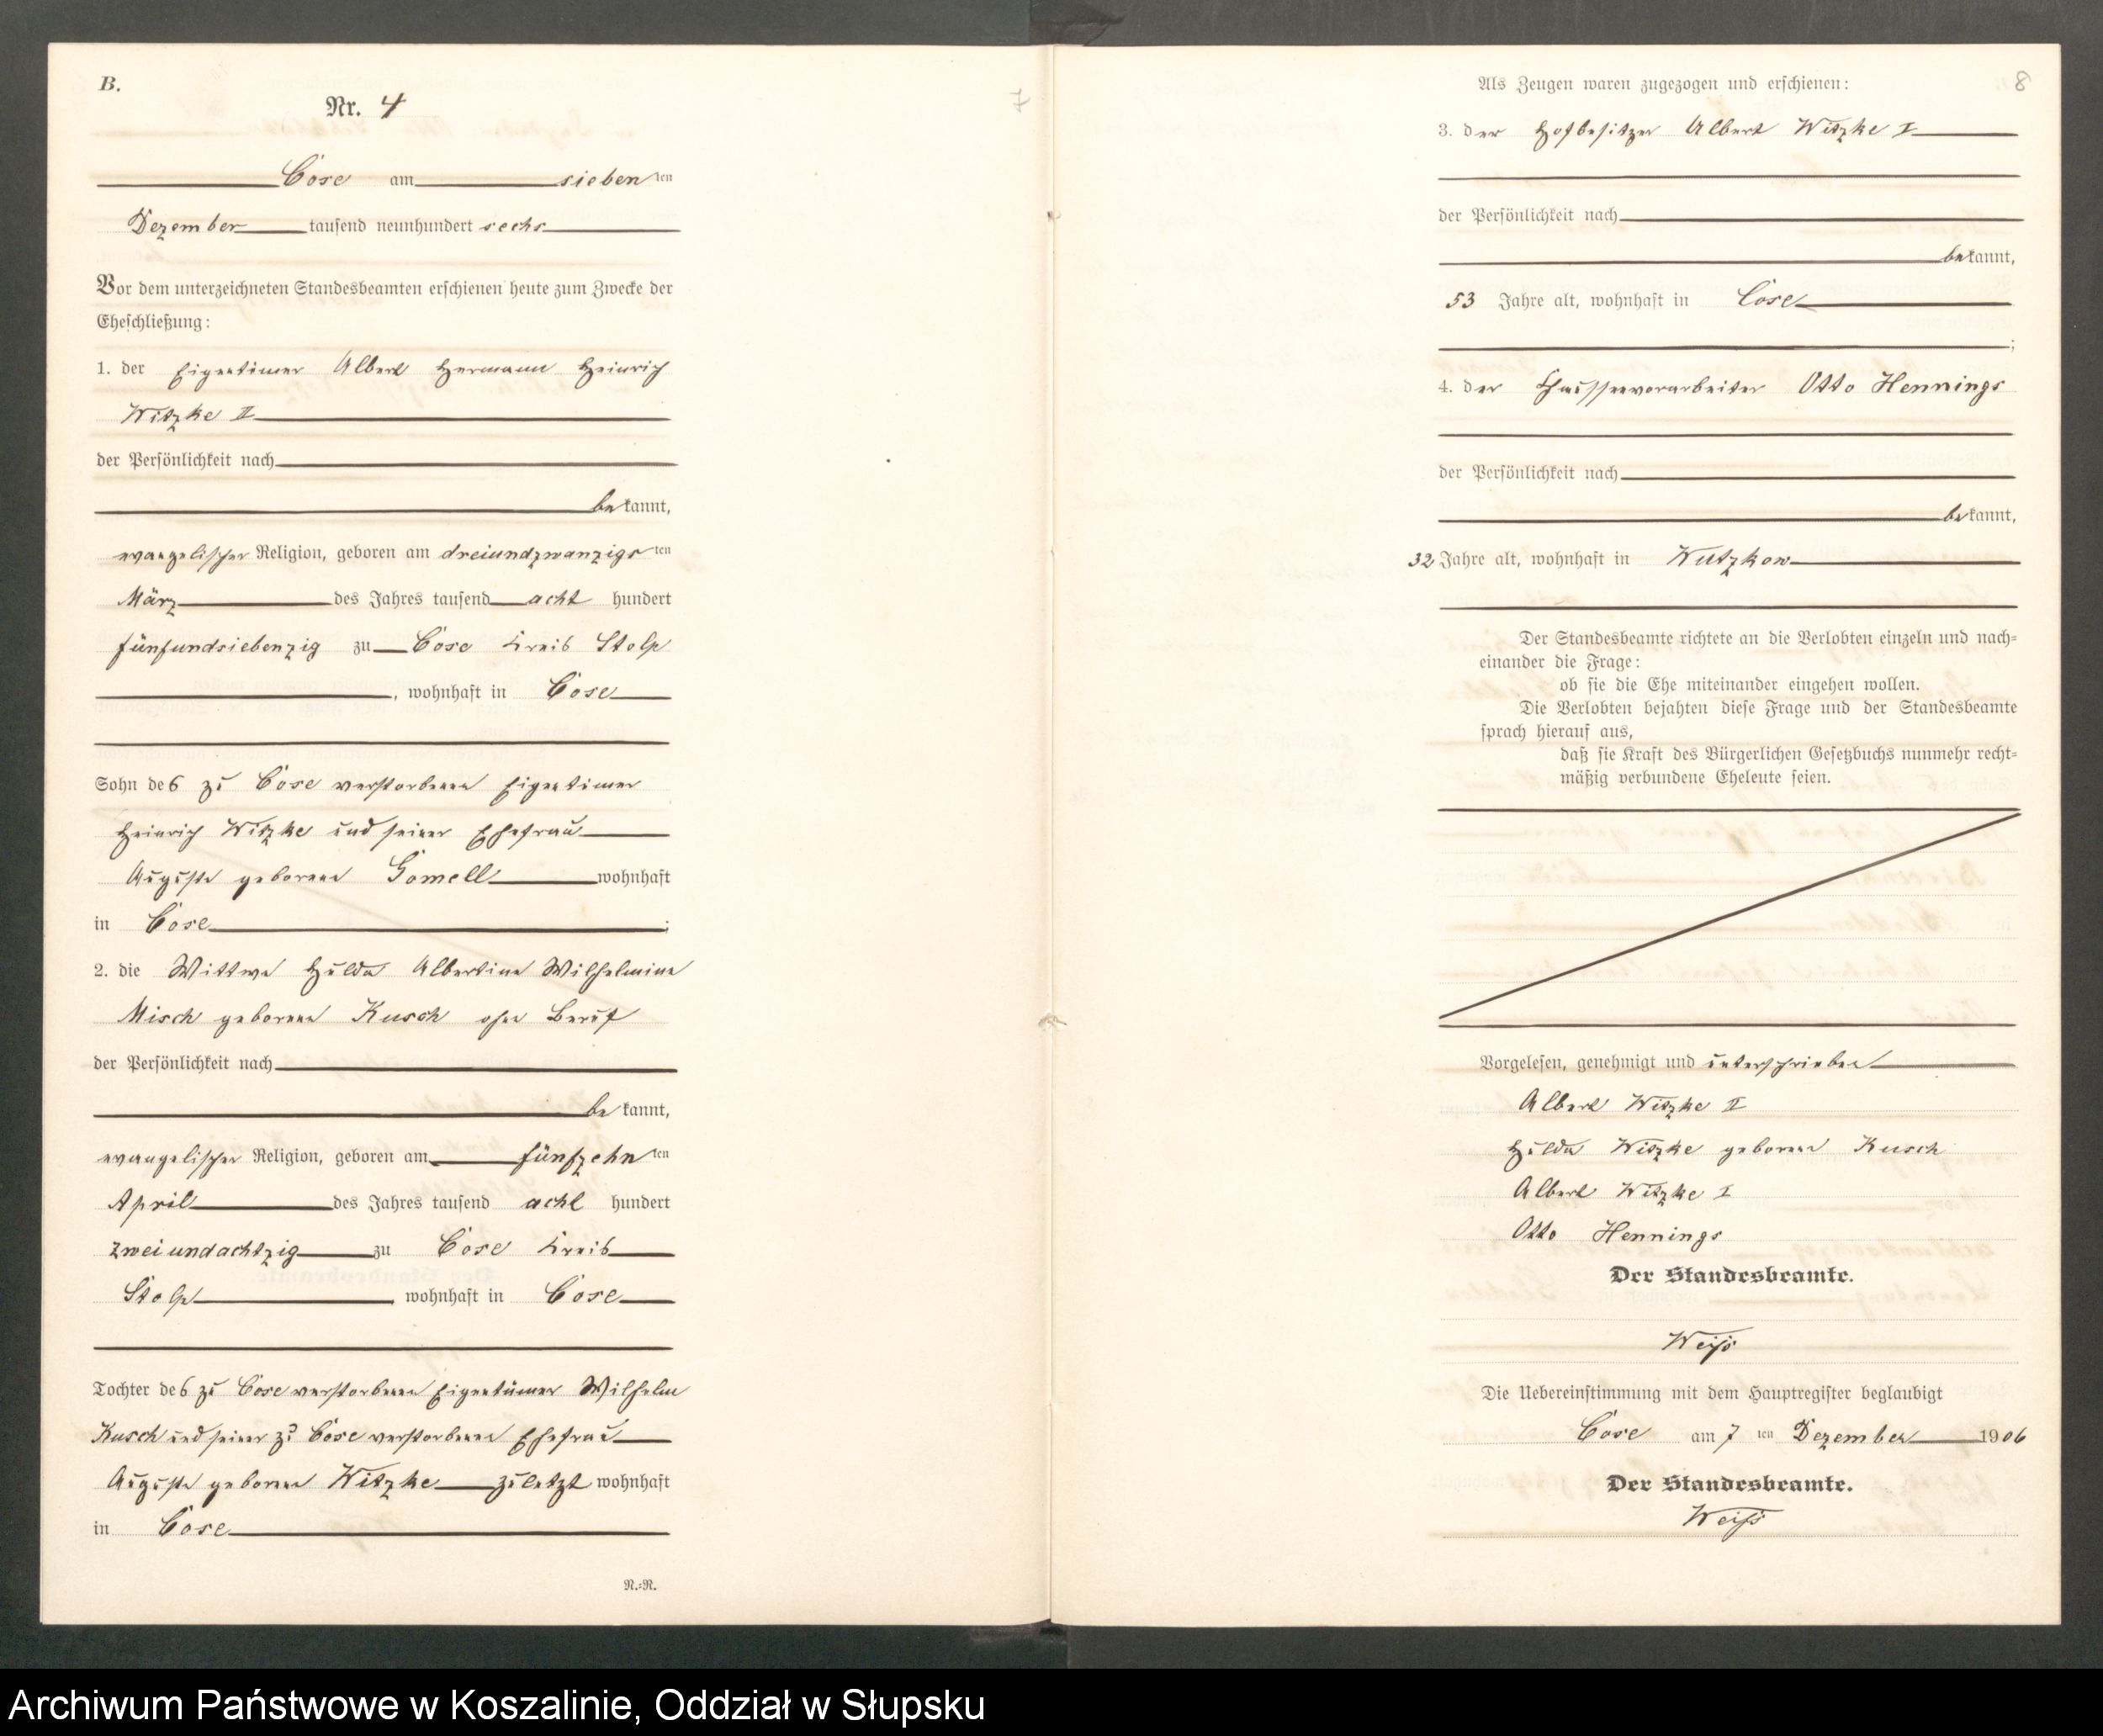 B.
Nr. 4
7
Cose am siebenten
Dezember tausend neunhundert sechs
Vor dem unterzeichneten Standesbeamten erschienen heute zum Zwecke der
Eheschließung:
1. der Eigentümer Albert Hermann Heinrich
Witzke II
der Persönlichkeit nach
bekannt,
evangelischer Religion, geboren am dreiundzwanzigsten
März des Jahres tausend acht hundert
fünfundsiebenzig zu Cose Kreis Stolp
, wohnhaft in Cose
Sohn des zu Cose verstorbenen Eigentümer
Heinrich Witzke und seiner Ehefrau
Auguste geborene Gomell wohnhaft
in Cose;
2. die Wittwe Hulda Albertine Wilhelmine
Misch geborene Kusch ohne Beruf
der Persönlichkeit nach
bekannt,
evangelischer Religion, geboren am fünfzehnten
April des Jahres tausend acht hundert
zweiundachtzig zu Cose Kreis
Stolp wohnhaft in Cose
Tochter des zu Cose verstorbenen Eigentümer Wilhelm
Kusch und seiner zu Cose verstorbenen Ehefrau
Auguste geborene Witzke zuletzt wohnhaft
in Cose
N.=N.
8
Als Zeugen waren zugezogen und erschienen:
3. der Hofbesitzer Albert Witzke I
der Persönlichkeit nach
bekannt,
53 Jahre alt, wohnhaft in Cose
;
4. der Chausseevorarbeiter Otto Hennings
der Persönlichkeit nach
bekannt,
32 Jahre alt, wohnhaft in Wutzkow
Der Standesbeamte richtete an die Verlobten einzeln und nach=
einander die Frage:
ob sie die Ehe miteinander eingehen wollen.
Die Verlobten bejahten diese Frage und der Standesbeamte
sprach hierauf aus,
daß sie Kraft des Bürgerlichen Gesetzbuchs nunmehr recht=
mäßig verbundene Eheleute seien.
Vorgelesen, genehmigt und unterschrieben
Albert Witzke II
Hulda Witzke geborene Kusch
Albert Witzke I
Otto Hennings
Der Standesbeamte.
Weiß
Die Uebereinstimmung mit dem Hauptregister beglaubigt
Cose am 7 ten Dezember 1906
Der Standesbeamte.
Weiß
Archiwum Państwowe w Koszalinie, Oddział w Słupsku